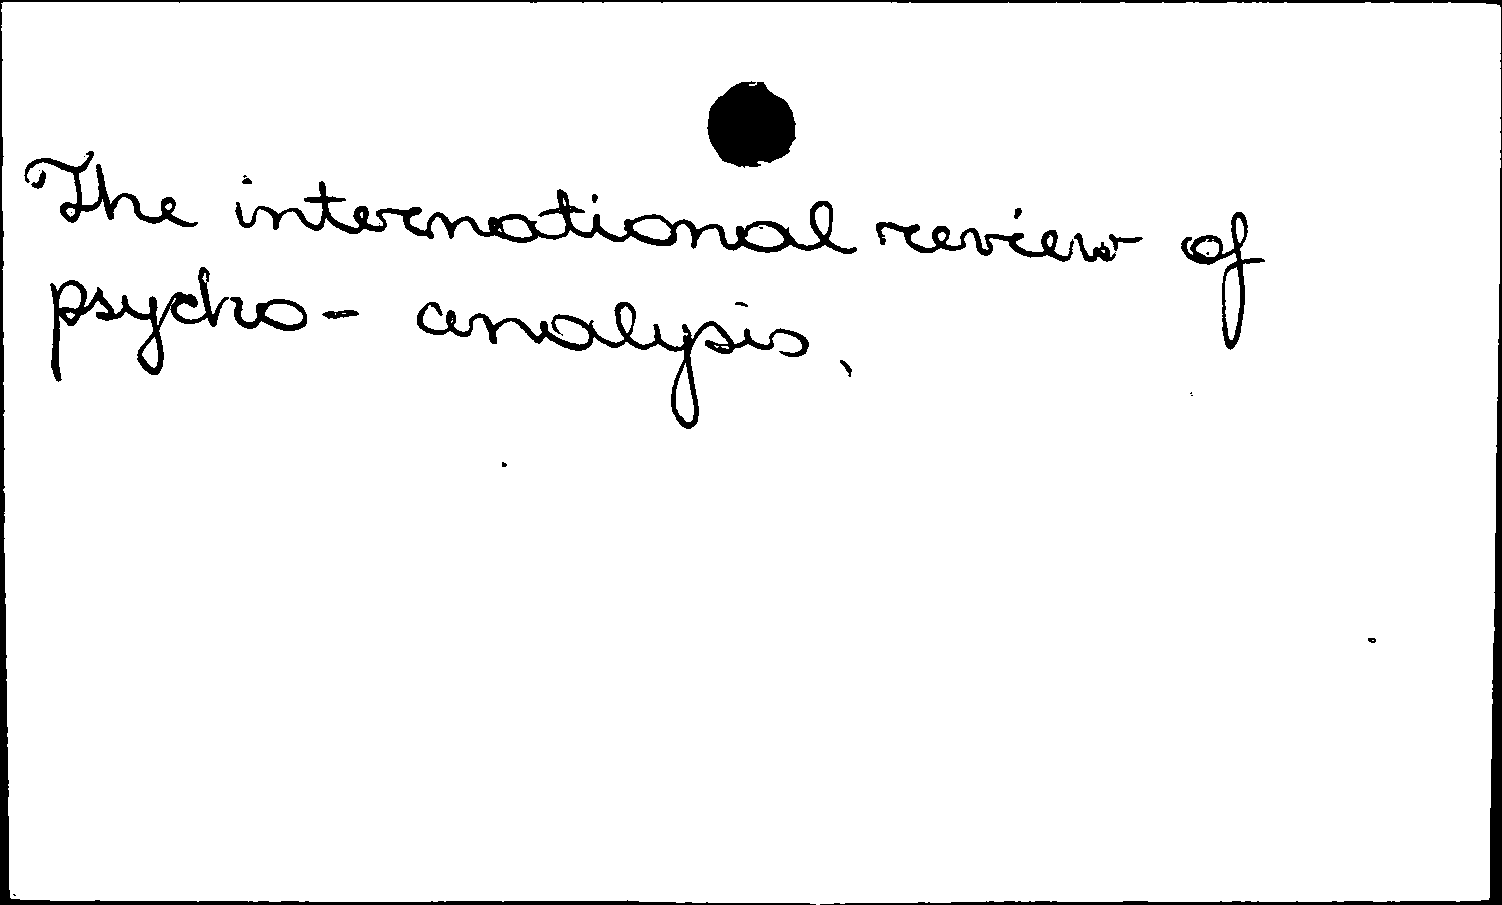 The international review of
psycho- analysis.